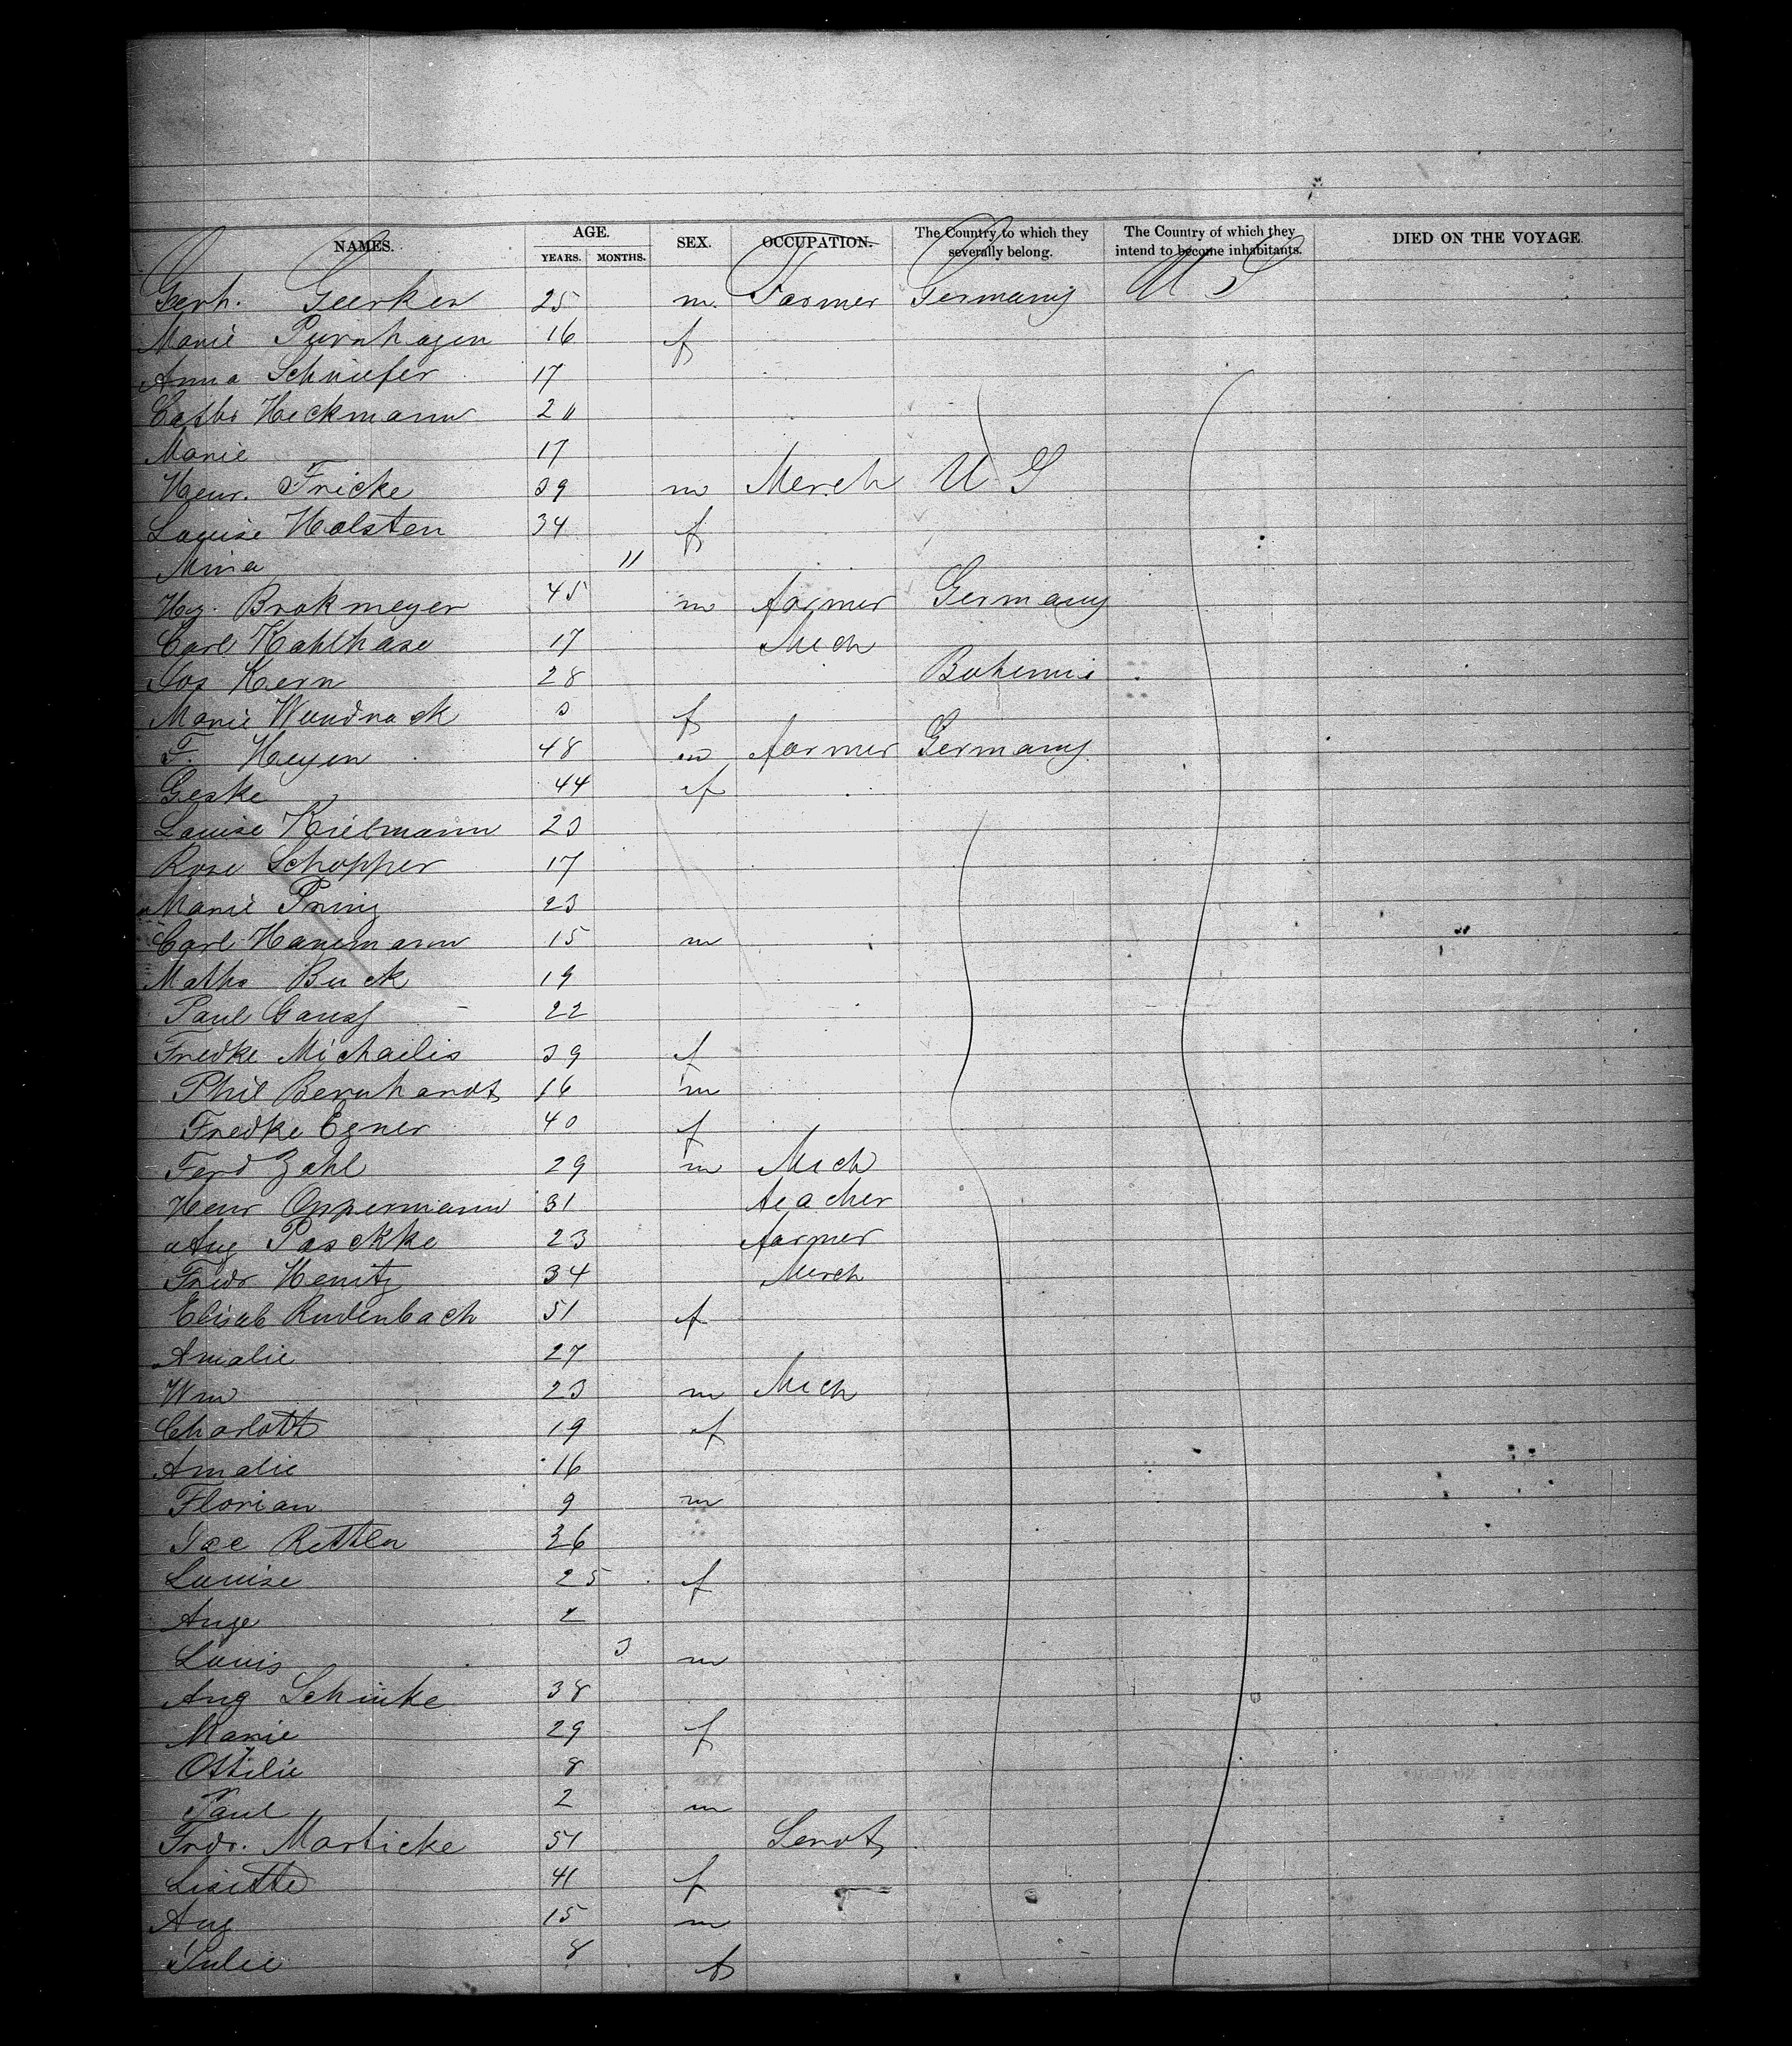 NAMES. AGE. SEX. OCCUPATION. The Country to which they severally belong. The Country of which they intend to become inhabitants. DIED ON THE VOYAGE.
YEARS. MONTHS.
Gerh. Geerken 25 m Farmer Germany U S
Marie Purnhagen 16 f
Anna Schriefer 17
Cathr Heckmann 20
Marie 17
Henr. Fricke 39 m Merch U S
Louise Holsten 34 f
Mina 11
Hy. Brokmeyer 45 m farmer Germany
Carl Kahlhase 17 Mech
Jos Kern 28 Bohemia
Marie Wundrack 3 f
F. Heyen 48 m farmer Germany
Geske 44 f
Louise Kielmann 23
Rose Schopper 17
Marie Pring 23
Carl Hanemann 15 m
Maths Buck 19
Paul Gauss 22
Fredke Michaelis 39 f
Phil Bernhardt 16 m
Fredke Egner 40 f
Ferd Zahl 29 m Mech
Henr Oppermann 31 teacher
Aug Paschke 23 farmer
Friedr Hentz 34 Merch
Elisab Rudenbach 51 f
Amalie 27
Wm 23 m Mech
Charlott 19 f
Amalie 16
Florian 9 m
Jac Rettler 36
Louise 25 f
Auge 2
Louis 3 m
Aug Schinke 38
Marie 29 f
Ottilie 8
Paul 2 m
Frdr. Marticke 51 Servt
Lisette 41 f
Aug 15 m
Julie 8 f